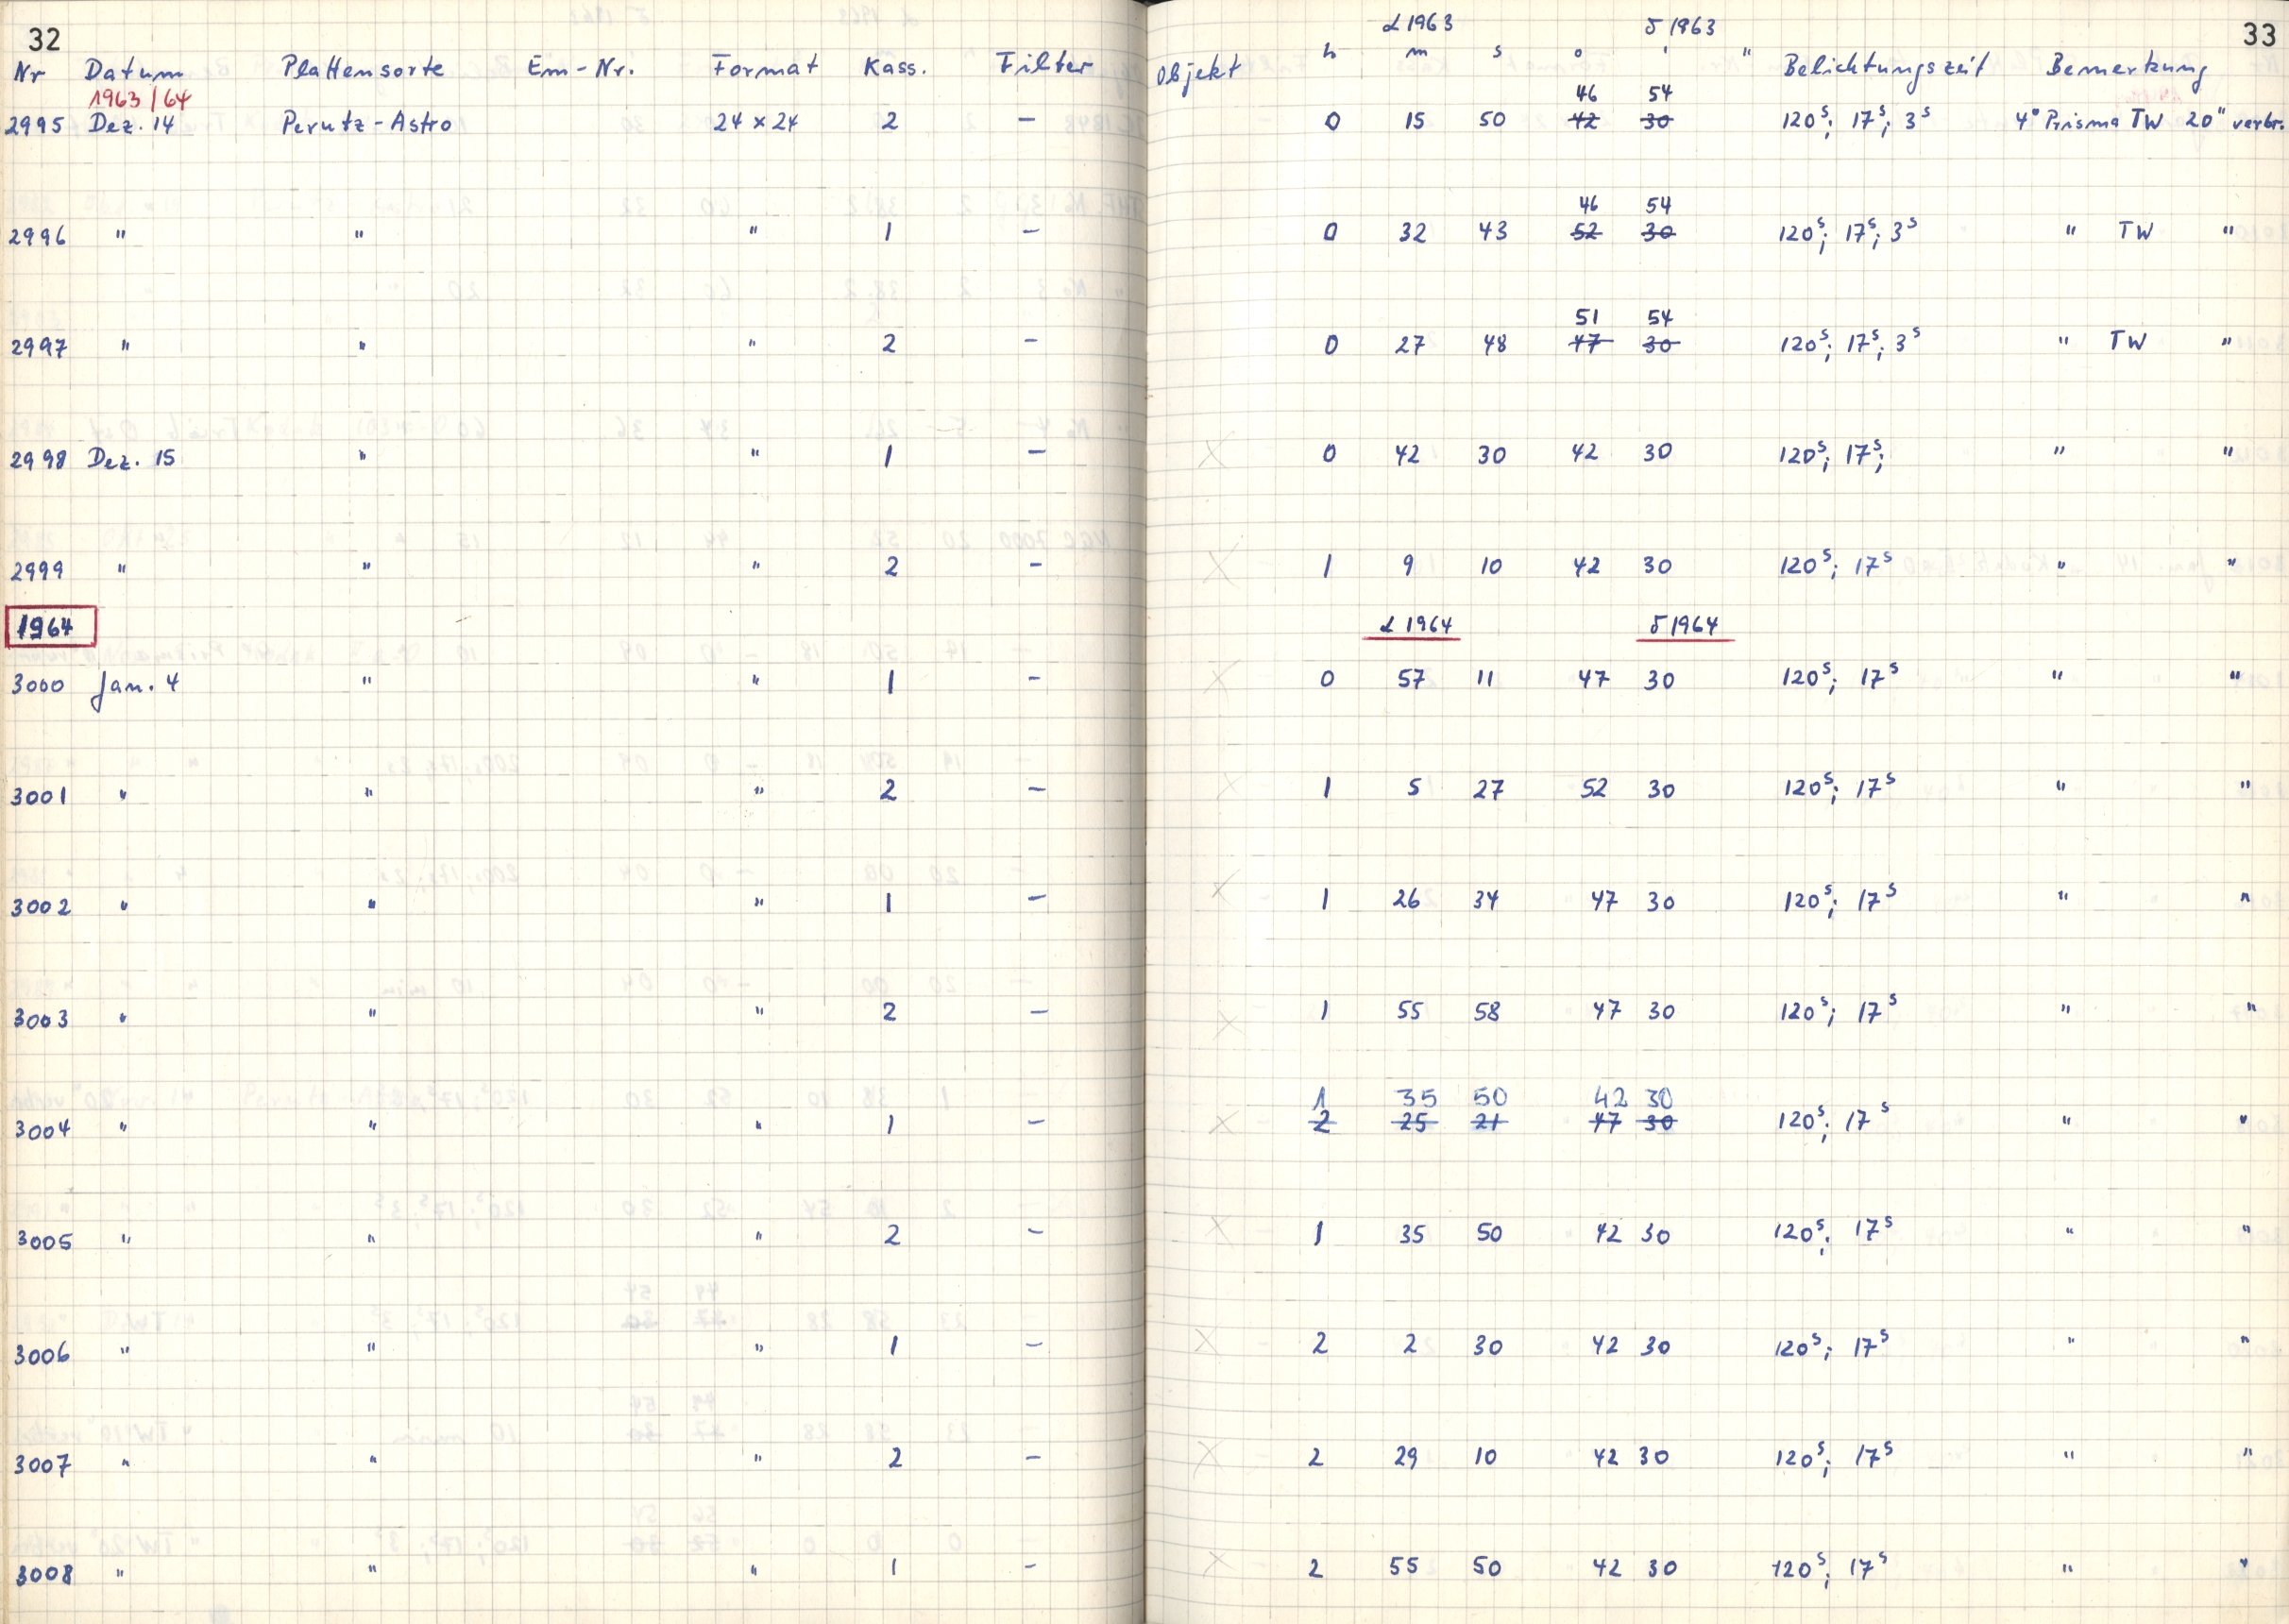 32
33
α 1963 δ 1963
Nr Datum Plattensorte Em-Nr. Format Kass. Filter Objekt h m s ° ' " Belichtungszeit Bemerkung
1963/64
46 54
2995 Dez. 14 Perutz-Astro 24 × 24 2 – 0 15 50 42 30 120ˢ; 17ˢ; 3ˢ 4° Prisma TW 20" verbr.
46 54
2996 " " " 1 – 0 32 43 52 30 120ˢ; 17ˢ; 3ˢ " TW "
51 54
2997 " " " 2 – 0 27 48 47 30 120ˢ; 17ˢ; 3ˢ " TW "
2998 Dez. 15 " " 1 – × 0 42 30 42 30 120ˢ; 17ˢ; " "
2999 " " " 2 – × 1 9 10 42 30 120ˢ; 17ˢ " "
1964 α 1964 δ 1964
3000 Jan. 4 " " 1 – × 0 57 11 47 30 120ˢ; 17ˢ " "
3001 " " " 2 – × 1 5 27 52 30 120ˢ; 17ˢ " "
3002 " " " 1 – × 1 26 34 47 30 120ˢ; 17ˢ " "
3003 " " " 2 – × 1 55 58 47 30 120ˢ; 17ˢ " "
1 35 50 42 30
3004 " " " 1 – × 2 25 21 47 30 120ˢ; 17ˢ " "
3005 " " " 2 – × 1 35 50 42 30 120ˢ; 17ˢ " "
3006 " " " 1 – × 2 2 30 42 30 120ˢ; 17ˢ " "
3007 " " " 2 – × 2 29 10 42 30 120ˢ; 17ˢ " "
3008 " " " 1 – × 2 55 50 42 30 120ˢ; 17ˢ " "